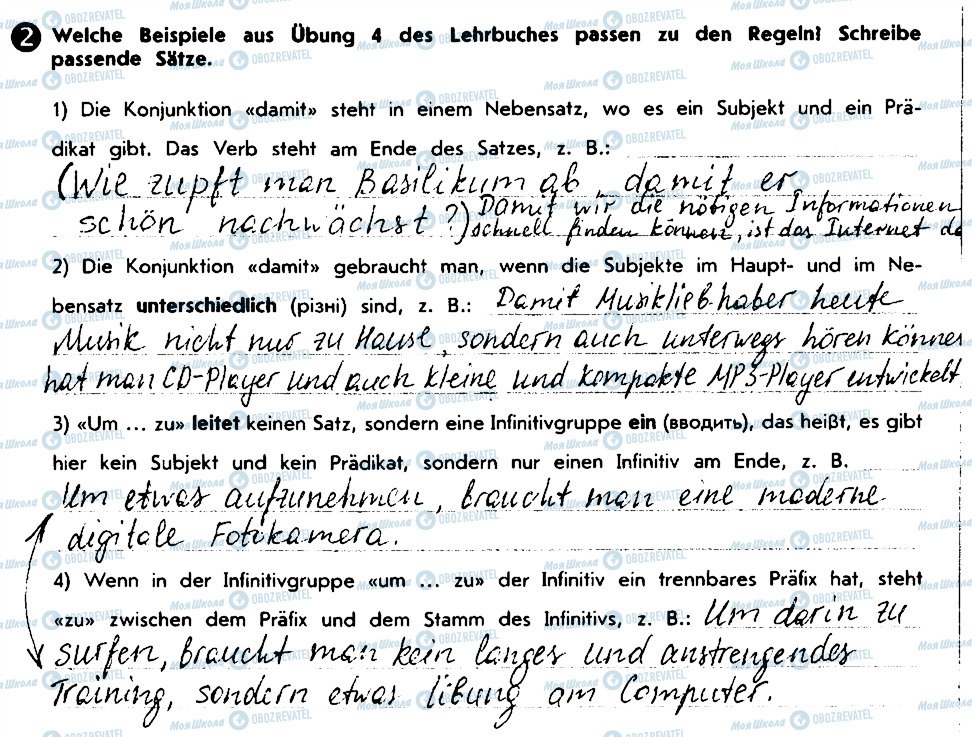 2 Welche Beispiele aus Übung 4 des Lehrbuches passen zu den Regeln? Schreibe
passende Sätze.
1) Die Konjunktion «damit» steht in einem Nebensatz, wo es ein Subjekt und ein Prä-
dikat gibt. Das Verb steht am Ende des Satzes, z. B.:
(Wie zupft man Basilikum ab, damit er
schön nachwächst?) Damit wir die nötigen Informationen
schnell finden können, ist das Internet da
2) Die Konjunktion «damit» gebraucht man, wenn die Subjekte im Haupt- und im Ne-
bensatz unterschiedlich (різні) sind, z. B.: Damit Musikliebhaber heute
Musik nicht nur zu Hause, sondern auch unterwegs hören können
hat man CD-Player und auch kleine und kompakte MP3-Player entwickelt
3) «Um ... zu» leitet keinen Satz, sondern eine Infinitivgruppe ein (вводить), das heißt, es gibt
hier kein Subjekt und kein Prädikat, sondern nur einen Infinitiv am Ende, z. B.
Um etwas aufzunehmen, braucht man eine moderne
digitale Fotokamera.
4) Wenn in der Infinitivgruppe «um ... zu» der Infinitiv ein trennbares Präfix hat, steht
«zu» zwischen dem Präfix und dem Stamm des Infinitivs, z. B.: Um darin zu
surfen, braucht man kein langes und anstrengendes
Training, sondern etwas Übung am Computer.
Моя Школа OBOZREVATEL